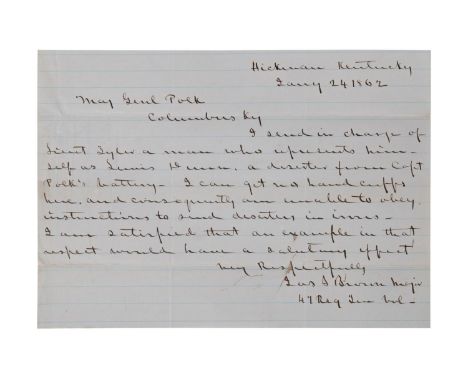 Hickman Kentucky
Jany 24 1862
Maj Genl Polk
Columbus Ky
I send in charge of
Lieut Tyler a man who represents him-
self as Lewis a deserter from Capt
Polk's battery - I can get no hand cuffs
here, and consequently am unable to obey
instructions to send deserters in irons -
I am satisfied that an example in that
respect would have a salutary effect
Very Respectfully
Jas S Brown Major
47 Reg Ten Vol -